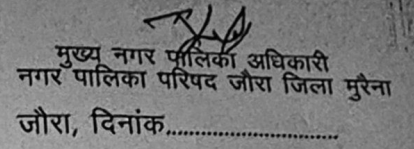 मुख्य नगर पालिका अधिकारी
नगर पालिका परिषद जौरा जिला मुरैना
जौरा, दिनांक..............................